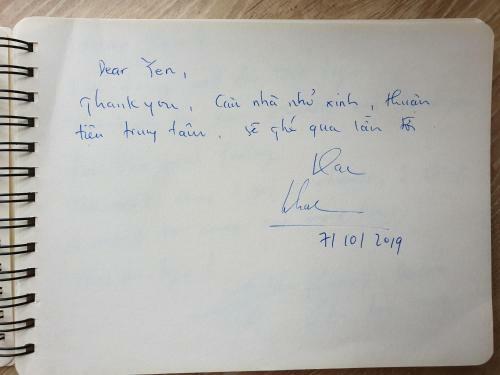 Dear Yen,
Thank you, Căn nhà nhỏ xinh, thuận
tiện trung tâm. sẽ ghé qua lần tới
7/10/2019